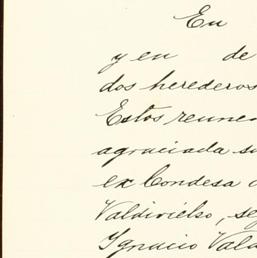 En
y en de
dos herederos
Estos reunen
agraciada su
ex Condesa d
Valdivielso, se
Ignacio Vald